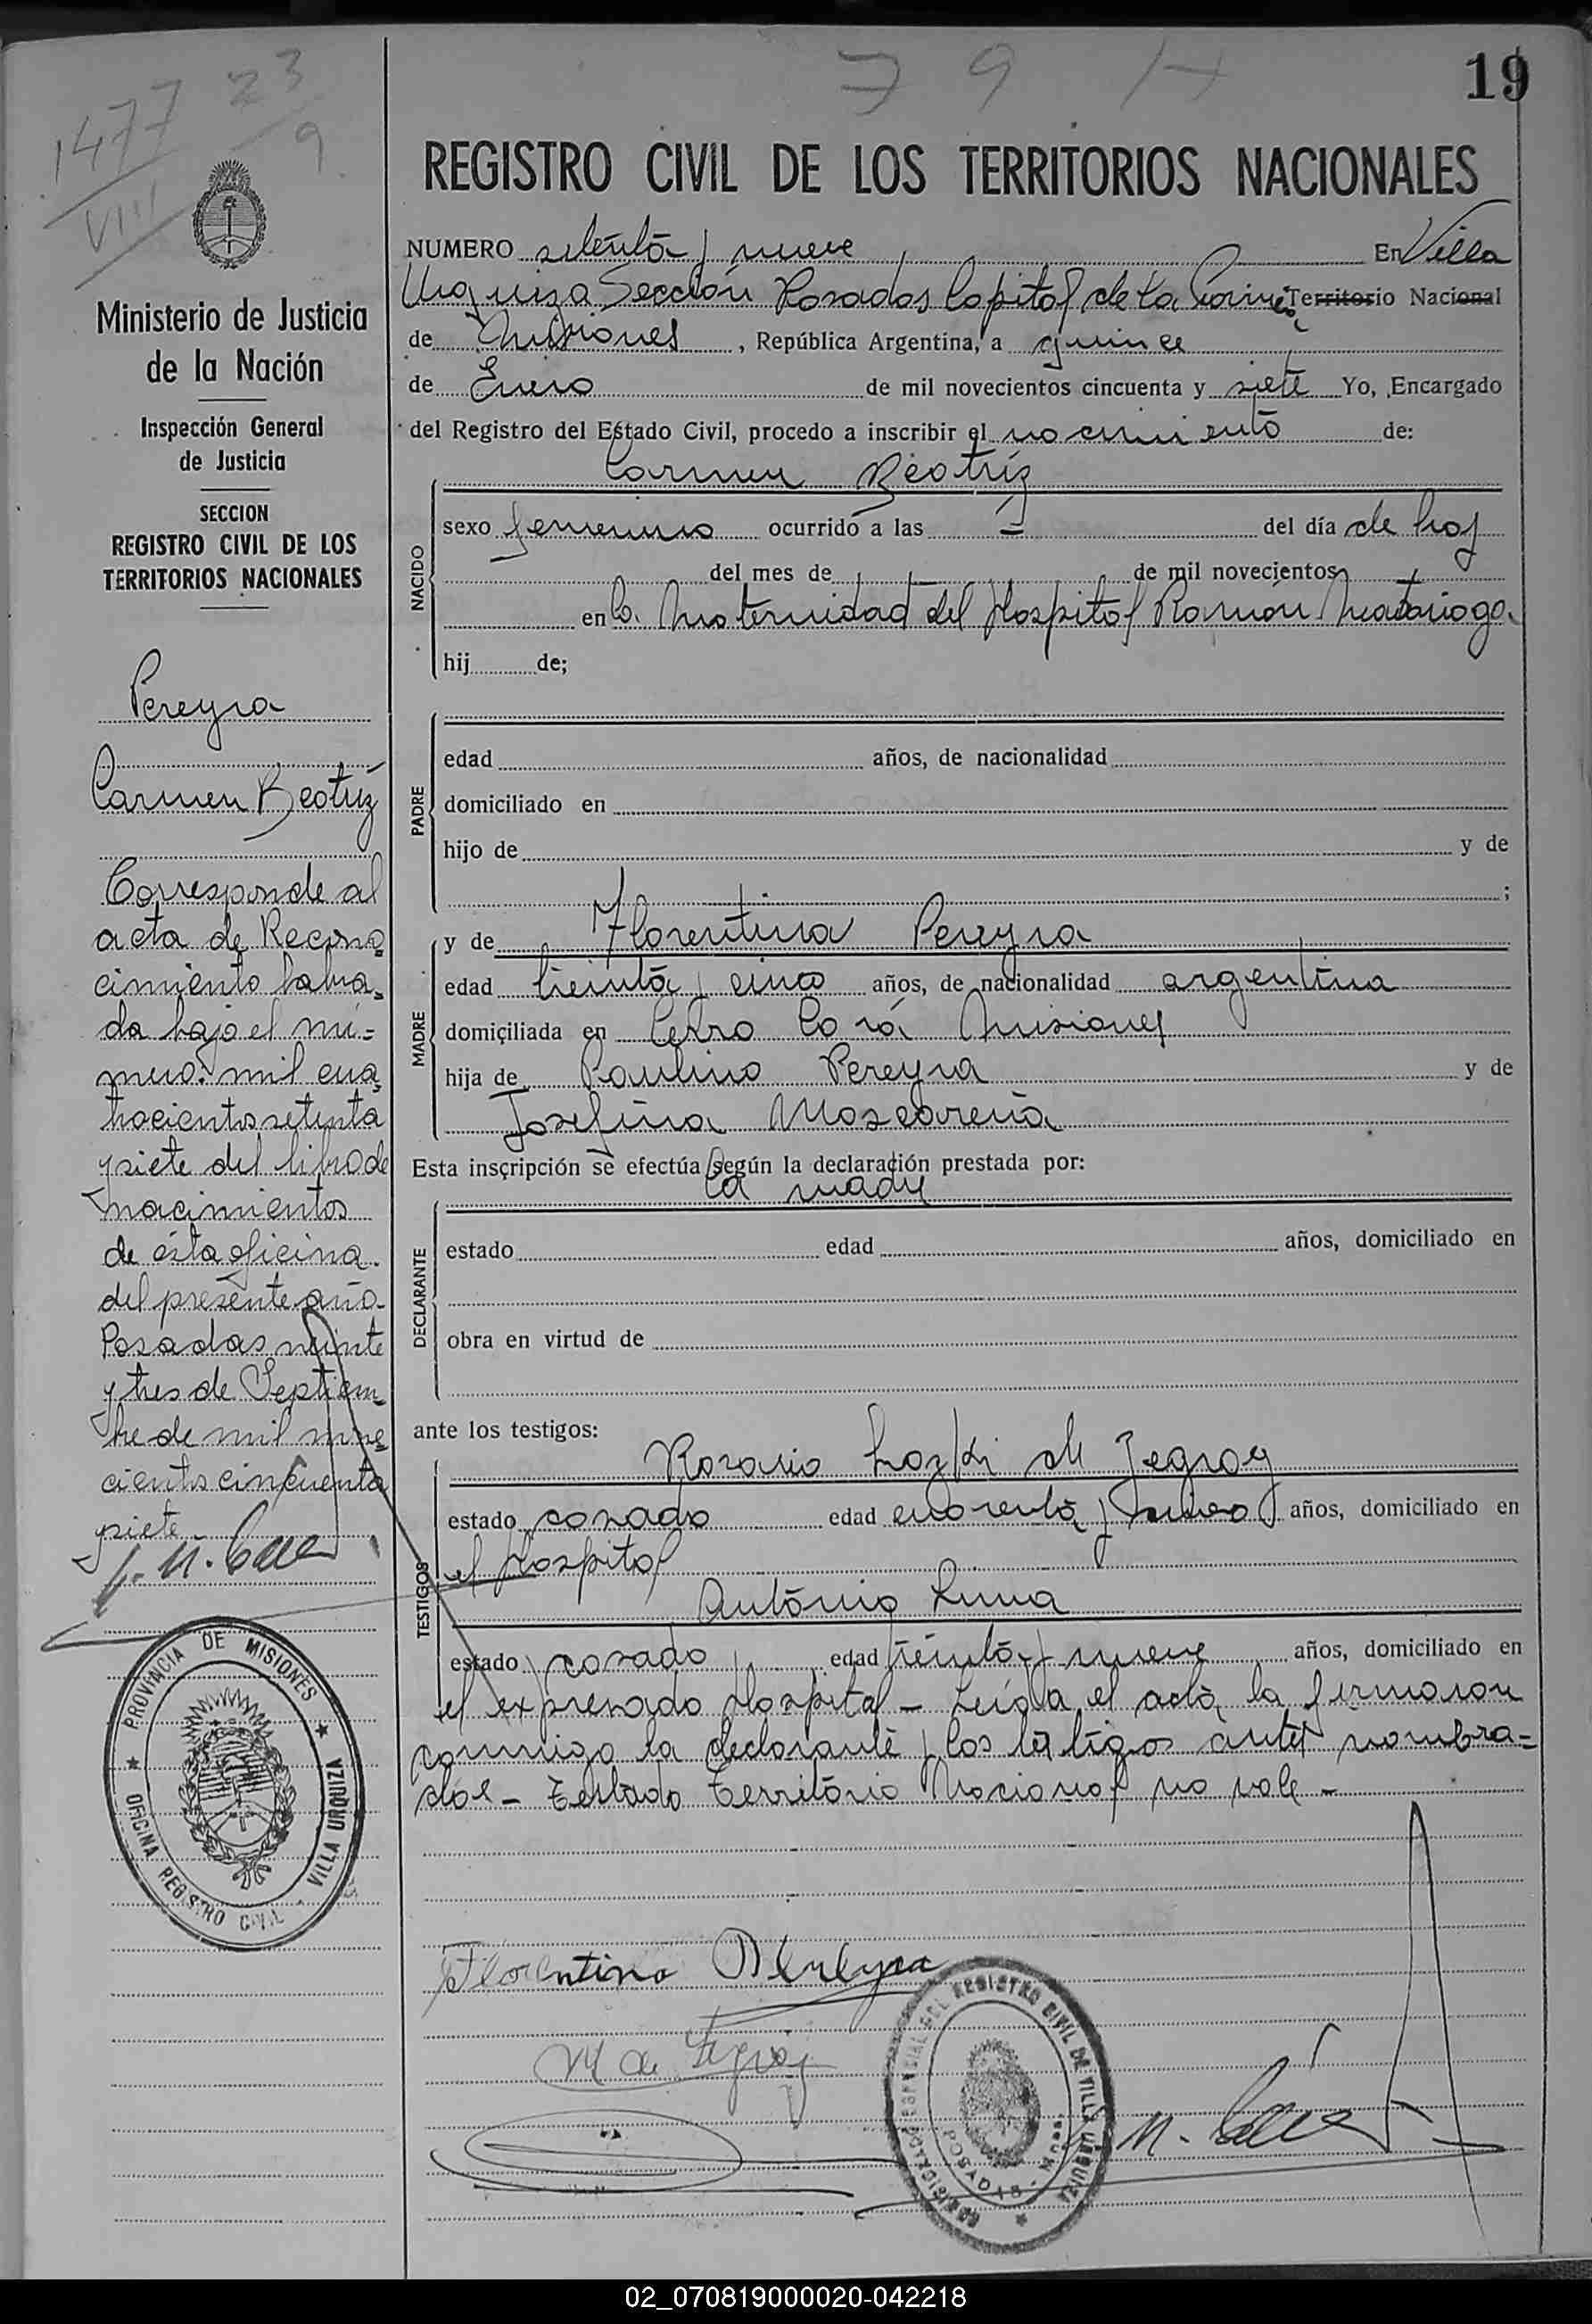 79
19
1477
VIII
23
9
REGISTRO CIVIL DE LOS TERRITORIOS NACIONALES
NUMERO setenta y nueve En Villa
Urquiza Sección Posadas Capital de la Territorio Nacional
de Misiones, República Argentina, a quince
de Enero de mil novecientos cincuenta y siete Yo, Encargado
del Registro del Estado Civil, procedo a inscribir el nacimiento de:
Carmen Beatríz
NACIDO
sexo femenino ocurrido a las = del día de hoy
del mes de de mil novecientos
en la Maternidad del Hospital Ramón Madariaga
hij de;
PADRE
edad años, de nacionalidad
domiciliado en
hijo de y de
;
MADRE
y de Florentina Pereyra
edad treinta y cinco años, de nacionalidad argentina
domiciliada en Cerro Corá Misiones
hija de Paulino Pereyra y de
Josefina
Esta inscripción se efectúa según la declaración prestada por:
la madre
DECLARANTE
estado edad años, domiciliado en
obra en virtud de
ante los testigos:
TESTIGOS
Rosario de
estado casado edad cuarenta y años, domiciliado en
el Hospital
Antonio Luna
estado casado edad treinta y nueve años, domiciliado en
el expresado Hospital - Leída el acta la firmaron
conmigo la declarante y los testigos antes nombra=
dos - Testado Territorio Nacional no vale -
Florentina Pereyra
REGISTRO CIVIL DE VILLA URQUIZA
POSADAS - Mnes.
Ministerio de Justicia
de la Nación
Inspección General
de Justicia
SECCION
REGISTRO CIVIL DE LOS
TERRITORIOS NACIONALES
Pereyra
Carmen Beatríz
Corresponde al
acta de Recono
cimiento labra=
da bajo el nú=
mero: mil cua
trocientos setenta
y siete del libro de
nacimientos
de ésta oficina
del presente año.
Posadas veinte
y tres de Septiem
bre de mil nove
cientos cincuenta
y siete
PROVINCIA DE MISIONES
OFICINA REGISTRO CIVIL VILLA URQUIZA
02_070819000020-042218